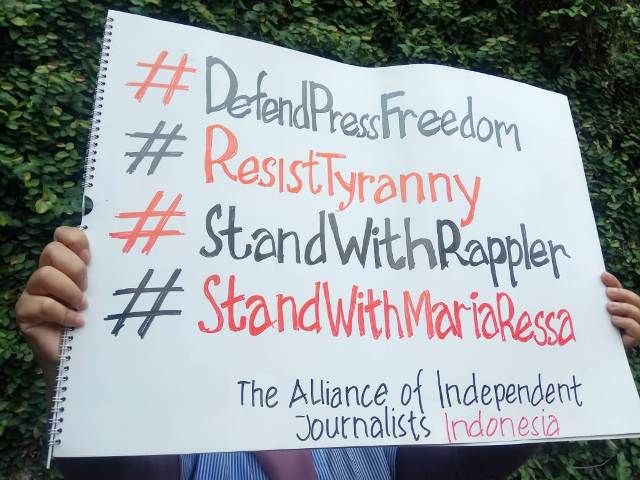 # DefendPressFreedom
# ResistTyranny
# StandWithRappler
# StandWithMariaRessa
The Alliance of Independent
Journalists Indonesia